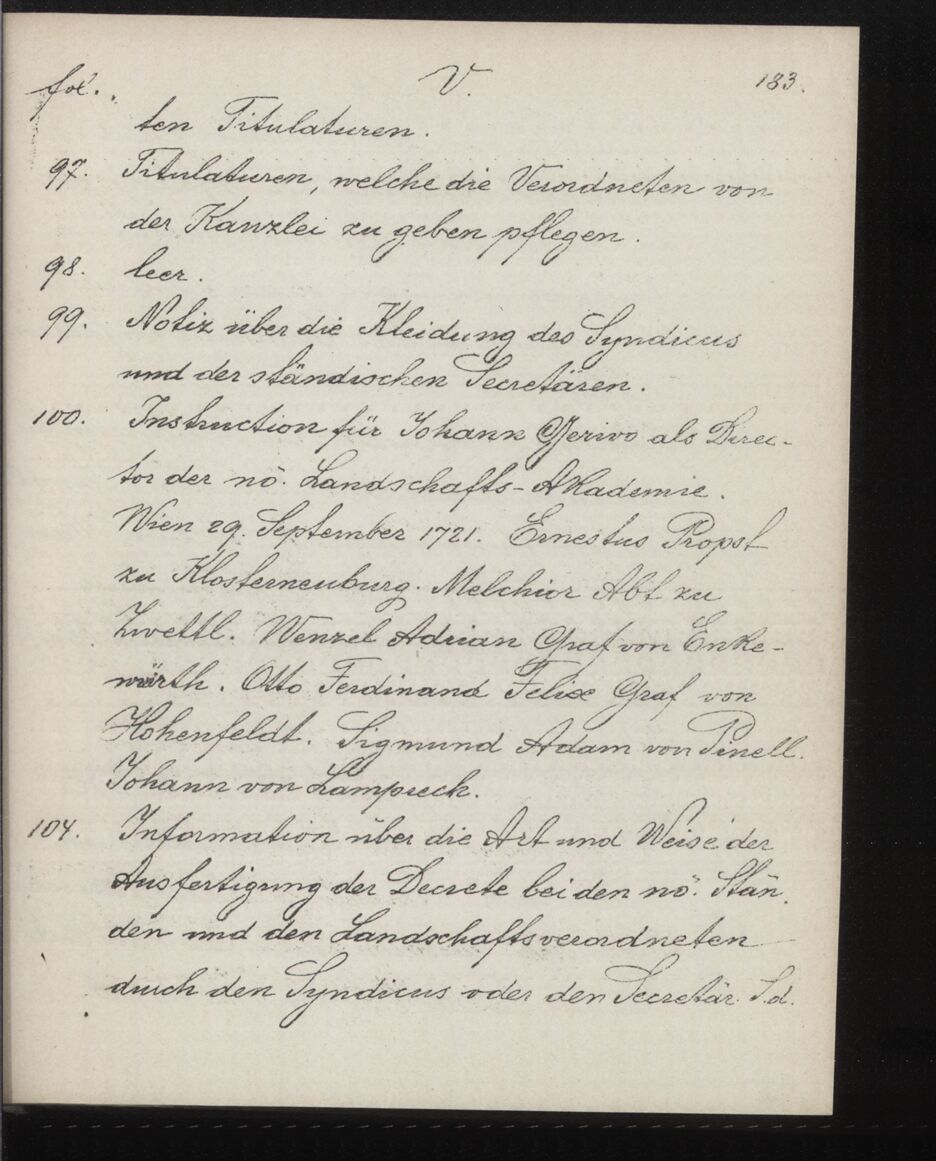 fol. V. 183.
ten Titulaturen.
97. Titulaturen, welche die Verordneten von
der Kanzlei zu geben pflegen.
98. leer.
99. Notiz über die Kleidung des Syndicus
und der ständischen Secretären.
100. Instruction für Johann Gerivo als Direc-
tor der nö. Landschafts-Akademie.
Wien 29. September 1721. Ernestus Propst
zu Klosterneuburg. Melchior Abt zu
Zwettl. Wenzel Adrian Graf von Enke-
würth. Otto Ferdinand Felix Graf von
Hohenfeldt. Sigmund Adam von Pinell.
Johann von Lampreck.
104. Information über die Art und Weise der
Ausfertigung der Decrete bei den nö. Stän.
den und den Landschaftsverordneten
durch den Syndicus oder den Secretär. S.d.